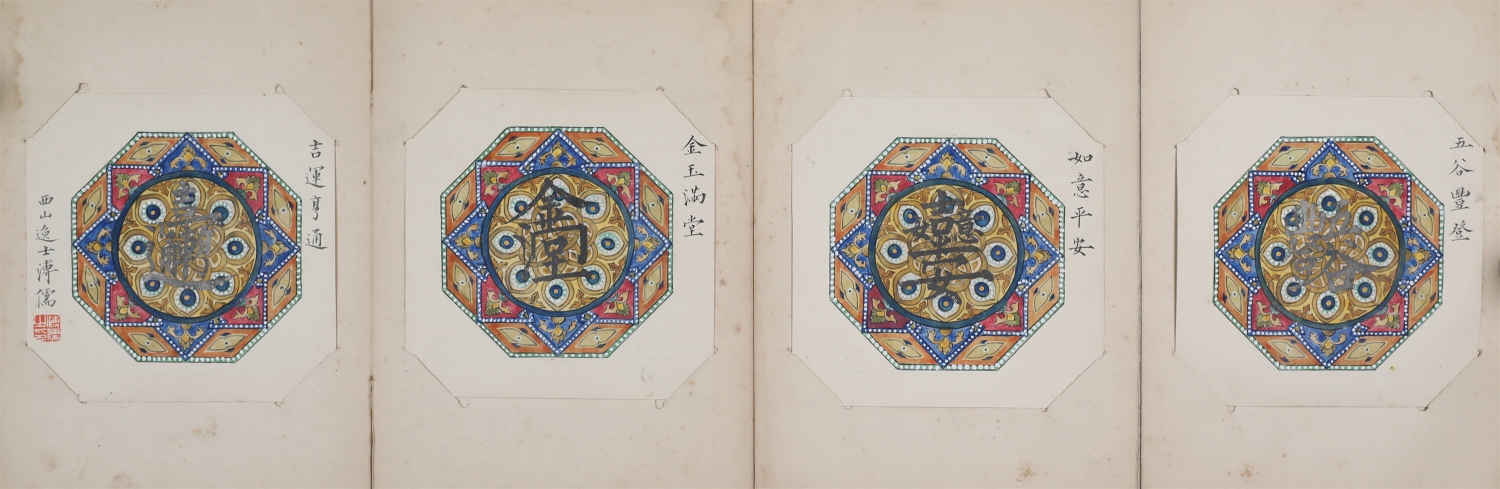 五谷豐登
如意平安
金玉滿堂
吉運亨通
西山逸士溥儒